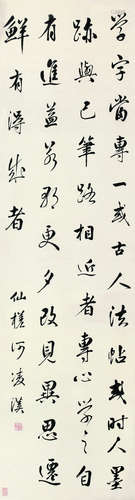 學字當專一或古人法帖或時人墨
跡與己筆路相近者專心學之自
有進益若朝更夕改見異思遷
鮮有得成者
仙槎何凌漢